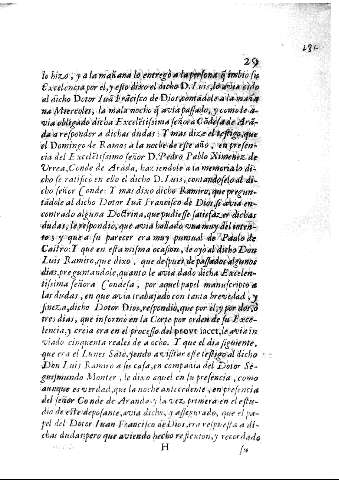 29
lo hizo, y a la mañana lo entregò a la persona q̃ imbio su
Excelencia por el, y esto dixo el dicho D. Luis, lo avia sido
al dicho Dotor Iuã Frãcisco de Dios, contãdole a la maña
na Miercoles, la mala noche q̃ avia passado, y como le a-
via obligado dicha Excelẽtissima señora Cõdesa de Arã-
da a responder a dichas dudas: Y mas dize el testigo, que
el Domingo de Ramos a la noche de este año, en presen-
cia del Excelẽtissimo señor D. Pedro Pablo Ximenez de
Vrrea, Conde de Arãda, haziendole a la memoria lo di-
cho se ratificò en ello el dicho D. Luis, contandoselo al di-
cho señor Conde: Y mas dixo dicho Ramiro, que pregun-
tãdole al dicho Dotor Iuã Francisco de Dios, si avia en-
contrado alguna Doctrina, que pudiesse satisfazer dichas
dudas, le respondiò, que avia hallado vna muy del inten-
to; y que a su parecer era muy puntual de Paulo de
Castro: Y que en esta misma ocasion, le oyò al dicho Don
Luis Ramiro, que dixo, que despues de passados algunos
dias, preguntandole, quanto le avia dado dicha Excelen-
tissima señora Condesa, por aquel papel manuscripto a
las dudas, en que avia trabajado con tanta brevedad, y
fineza, dicho Dotor Dios, respondiò, que por el, y por dos, o
tres dias, que informò en la Corte por orden de su Exce-
lencia, y creia era en el processo del prout iacet, le avia in-
viado cinquenta reales de a ocho. Y que el dia siguiente,
que era el Lunes Sãto, yendo a visitar este testigo al dicho
Don Luis Ramiro a su casa, en compañia del Dotor Se-
gismundo Monter, le dixo aquel en su presencia, como
aunque es verdad, que la noche antecedente, en presencia
del señor Conde de Aranda, y la vez primera en el estu-
dio de este deposante, avia dicho, y assegurado, que el pa-
pel del Dotor Iuan Francisco de Dios, era respuesta a di-
chas dudas; pero que aviendo hecho reflexion, y recordado
H